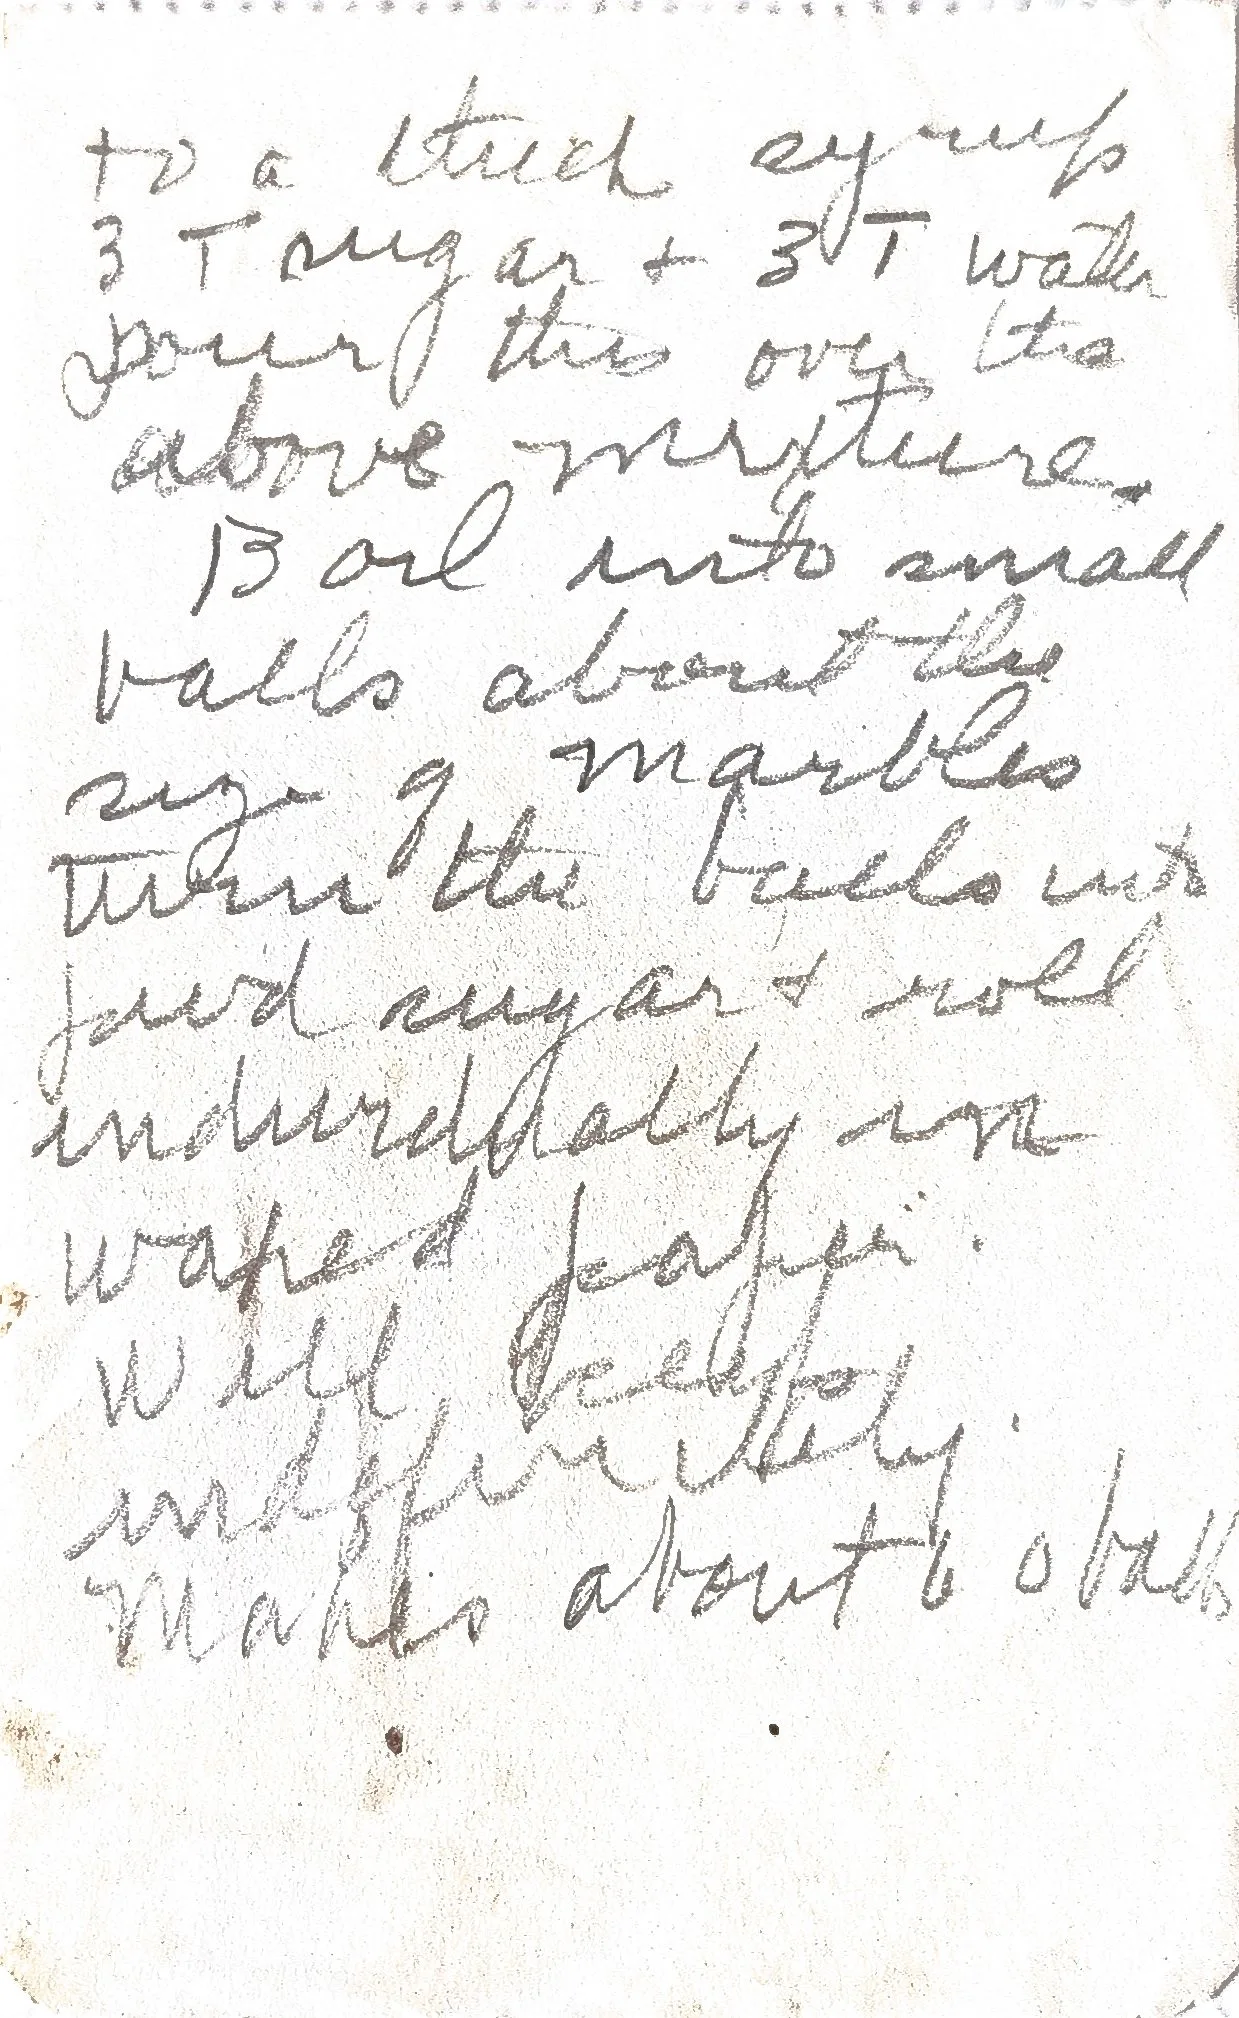 to a thick syrup
3 T sugar + 3 T water
pour this over the
above mixture.
Boil into small
balls about the
size of marbles
Turn the balls into
powd sugar + roll
individually in
waxed paper.
Will keep
indefinitely.
Makes about 60 balls